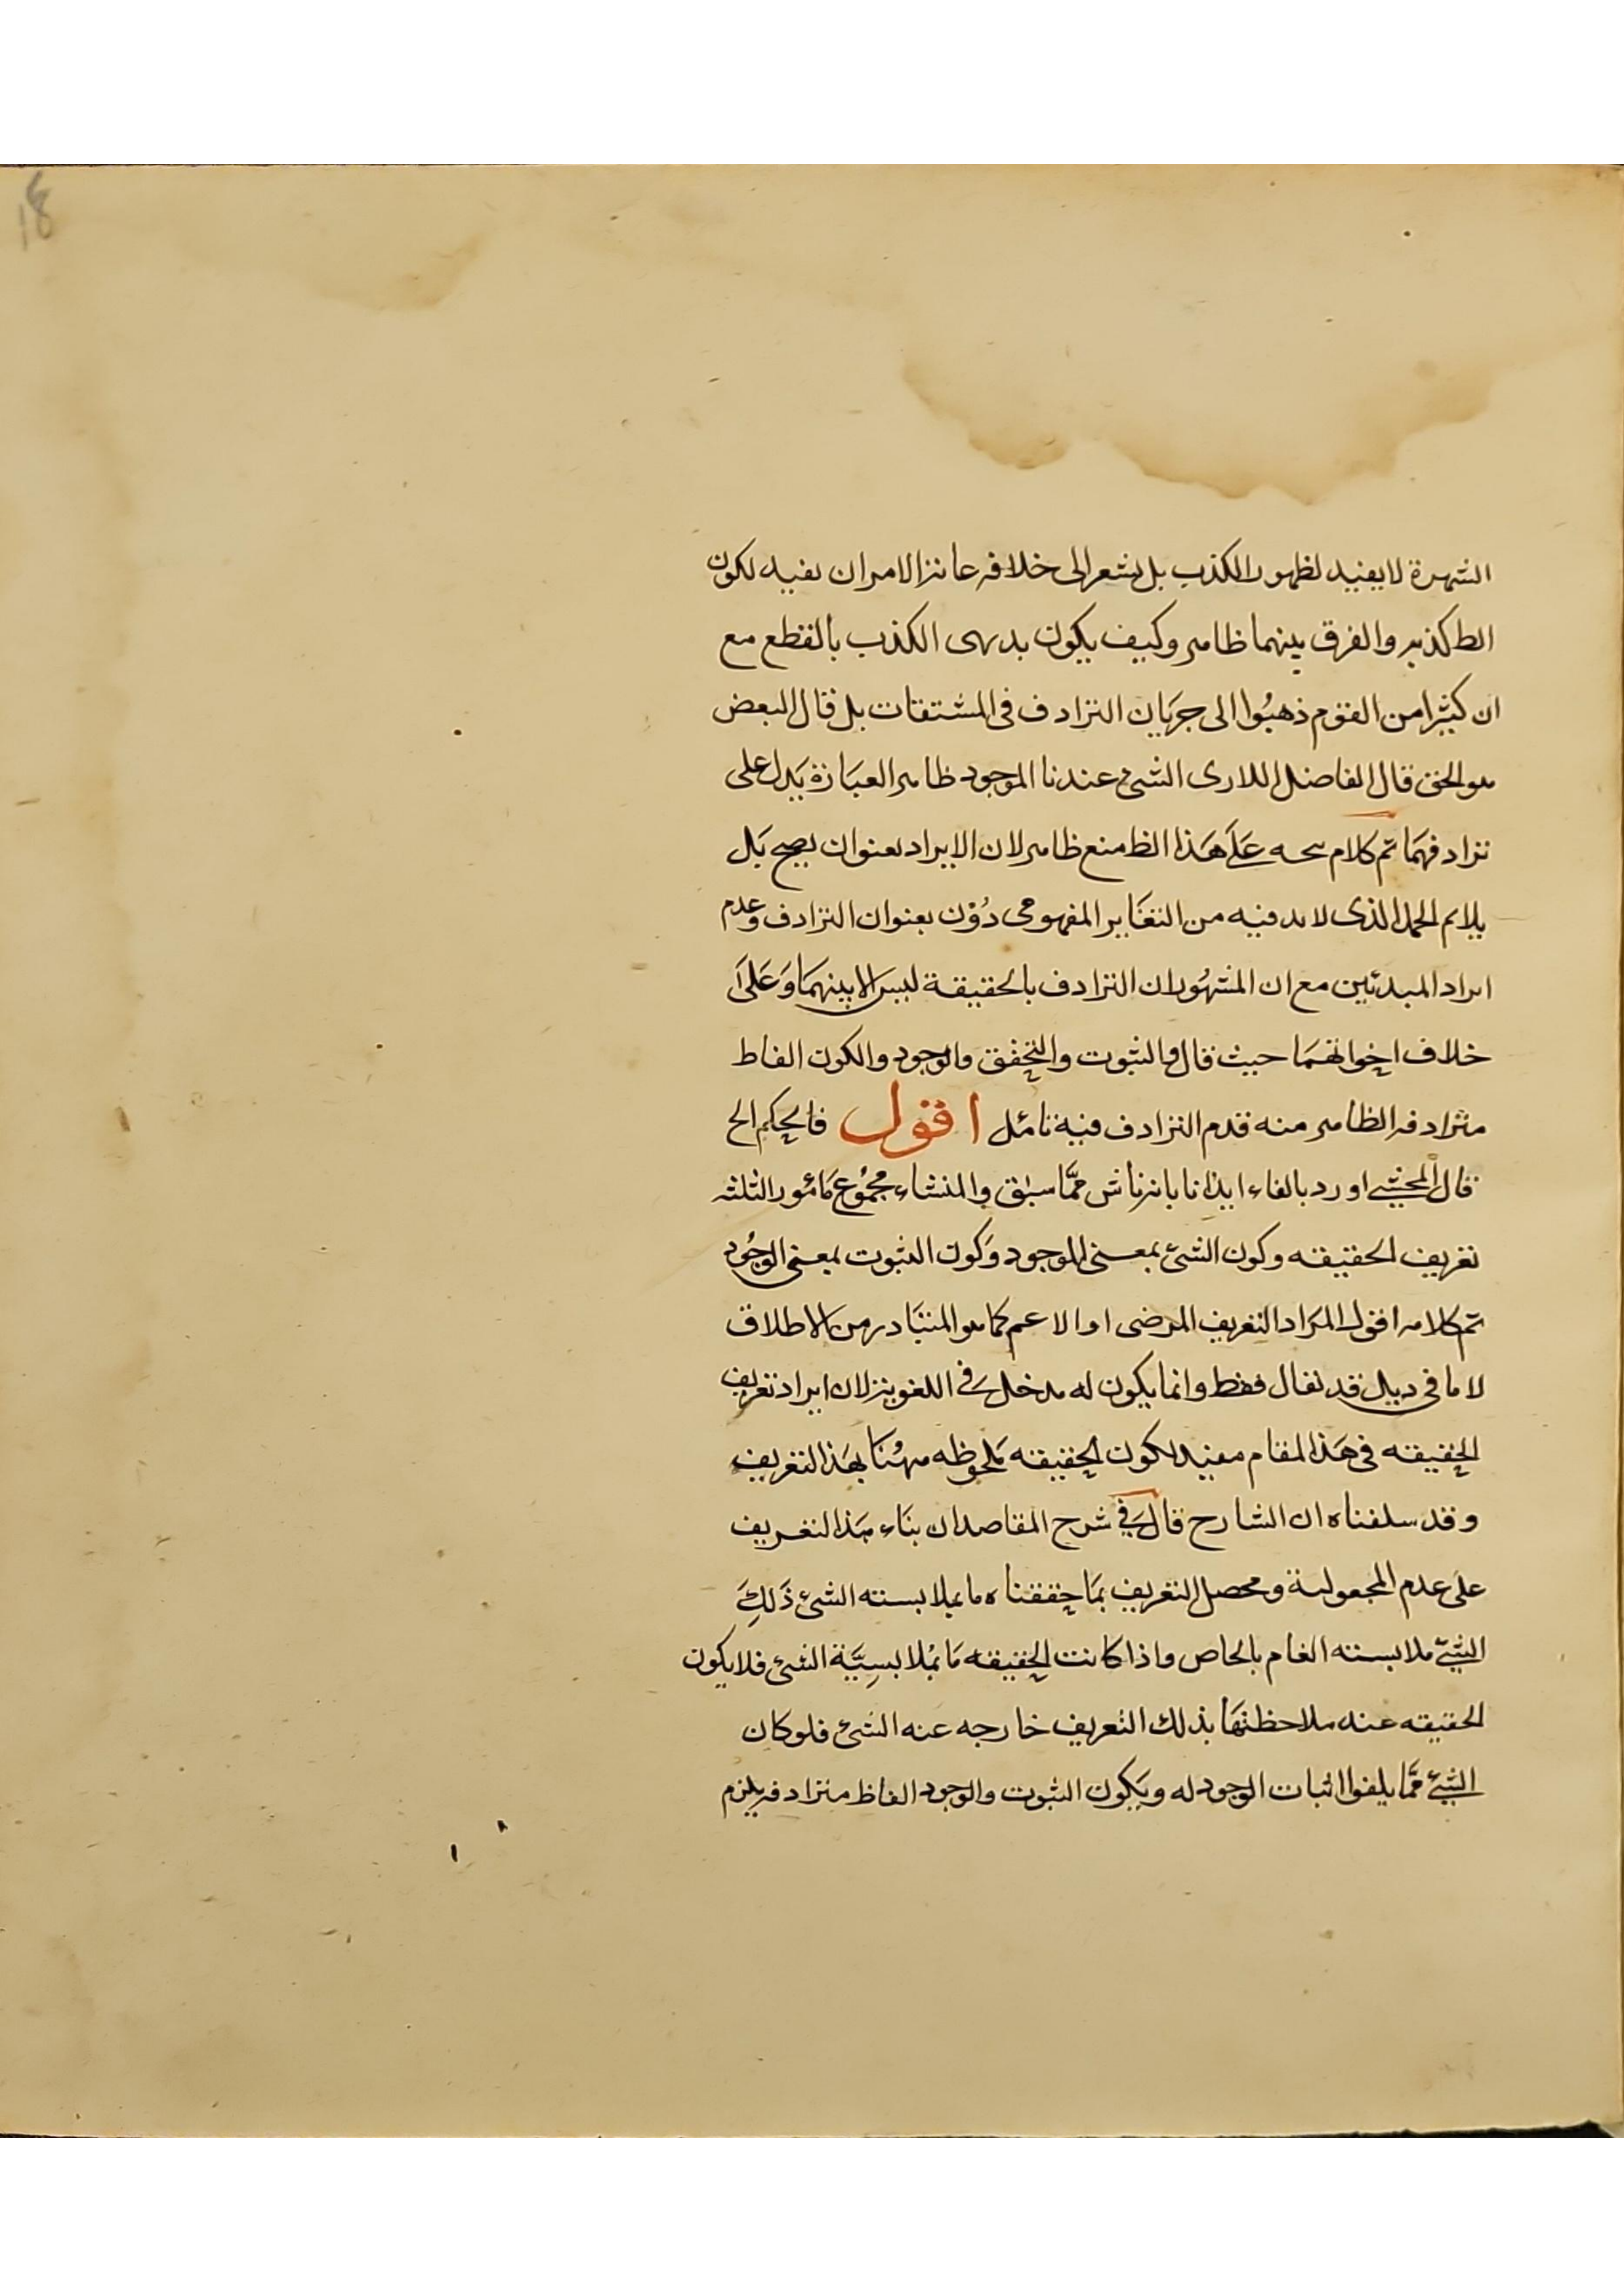 الشهرة لا يفيد لظهور الكذب بل يشعر الى خلافه غايته الامر ان يفيد لكون
الظ كذبه والفرق بينهما ظاهر وكيف يكون بديهى الكذب بالقطع مع
ان كثيرا من القوم ذهبوا الى جريان الترادف فى المشتقات بل قال البعض
هو الحق قال الفاضل اللارى الشئ عندنا الموجود ظاهر العبارة يدل على
ترادفهما تم كلام على هذا الظ منع ظاهر لان الايراد بعنوان يصح بل
يلايم الحمل الذى لا بد فيه من التغاير المفهومى دون بعنوان الترادف وعدم
ايراد المبدئين مع ان المشهور ان الترادف بالحقيقة ليس الا بينهما وعلى
خلاف اخواتهما حيث قال والثبوت والتحقق والوجود والكون الفاظ
مترادفه الظاهر منه قدم الترادف فيه تامل اقول فالحكم الخ
قال المحشى اورد بالفاء ايذانا بانه ناش مما سبق والمنشاء مجموع امور الثلثه
تعريف الحقيقه وكون الشئ بمعنى الموجود وكون الثبوت بمعنى الوجود
تم كلامه اقول المراد التعريف المرضى او الاعم كما هو المتبادر من الاطلاق
لا ما فى ذيل قد يقال فقط وانما يكون له مدخل فى اللغويه لان ايراد تعريف
الحقيقه فى هذا المقام مفيد لكون الحقيقه ملحوظه ههنا بهذا التعريف
وقد سلفناه ان الشارح قال فى شرح المقاصد ان بناء هذا التعريف
على عدم المجعولية ومحصل التعريف بما حققناه ما بملابسته الشئ ذلك
الشئ ملابسته العام بالخاص واذا كانت الحقيقه ما بملابسيّة الشئ فلا يكون
الحقيقه عند ملاحظتها بذلك التعريف خارجه عنه الشئ فلو كان
الشئ مما يلغوا اثبات الوجود له ويكون الثبوت والوجود الفاظ مترادفه يلزم